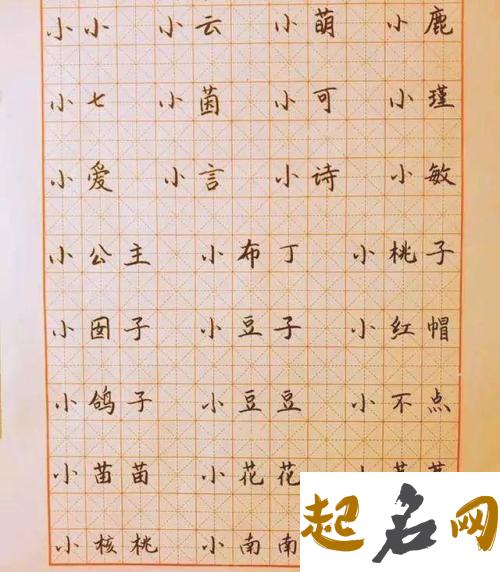 小小 小云 小萌 小鹿
小七 小茵 小可 小瑾
小爱 小言 小诗 小敏
小公主 小布丁 小桃子
小囡子 小豆子 小红帽
小鸽子 小豆豆 小不点
小苗苗 小花花 小
小核桃 小南南
起名网